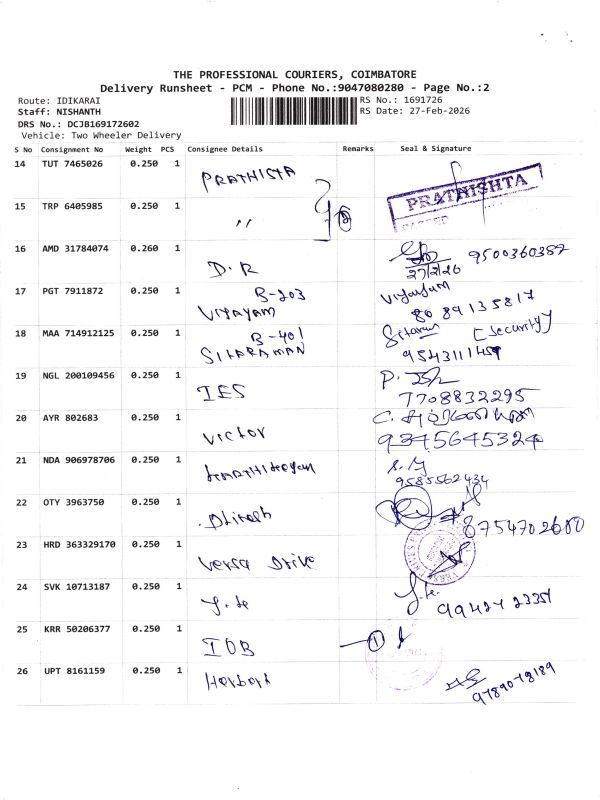 THE PROFESSIONAL COURIERS, COIMBATORE
Delivery Runsheet - PCM - Phone No.:9047080280 - Page No.:2
Route: IDIKARAI RS No.: 1691726
Staff: NISHANTH RS Date: 27-Feb-2026
DRS No.: DCJB169172602
Vehicle: Two Wheeler Delivery
S No Consignment No Weight PCS Consignee Details Remarks Seal & Signature
14 TUT 7465026 0.250 1 PRATHISTA PRATHISHTA
15 TRP 6405985 0.250 1 " 2
16 AMD 31784074 0.260 1 D.R 9500360387
27/2/26
17 PGT 7911872 0.250 1 B-203 Vijayam
VIJAYAM 8089135817
18 MAA 714912125 0.250 1 B-401 Sitaram [Security]
SITARAMAN 9543111459
19 NGL 200109456 0.250 1 IES P.
7708832295
20 AYR 802683 0.250 1 Victor C.
9345645324
21 NDA 906978706 0.250 1 S.
9585562434
22 OTY 3963750 0.250 1 8754702600
23 HRD 363329170 0.250 1 Versa Drive
24 SVK 10713187 0.250 1
25 KRR 50206377 0.250 1 IOB 1
26 UPT 8161159 0.250 1 9789078189